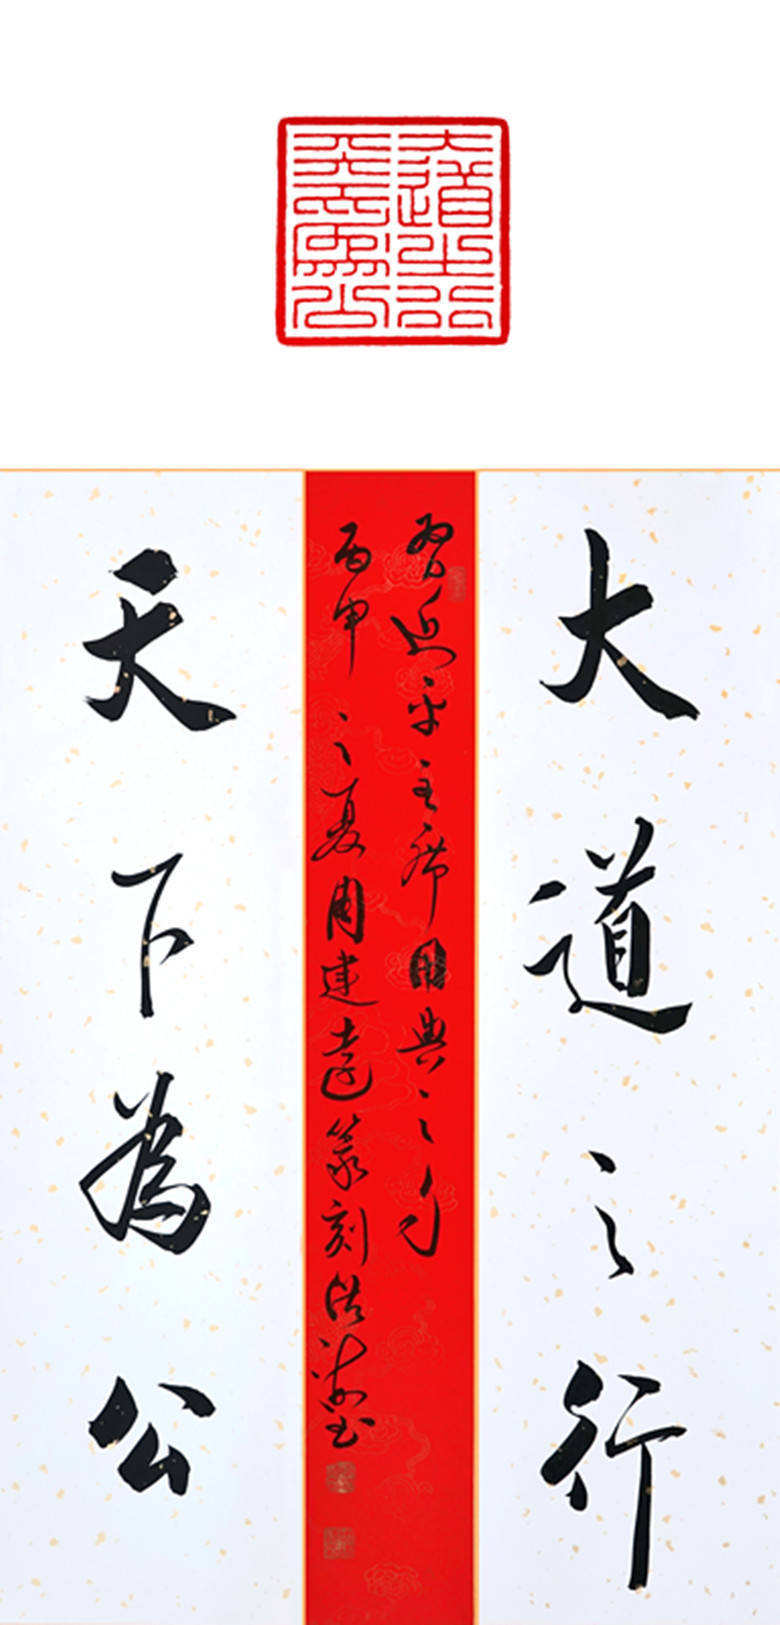 大道之行
天下為公
大道之行
習近平主席用典之句
丙申之夏周建遠篆刻
天下為公